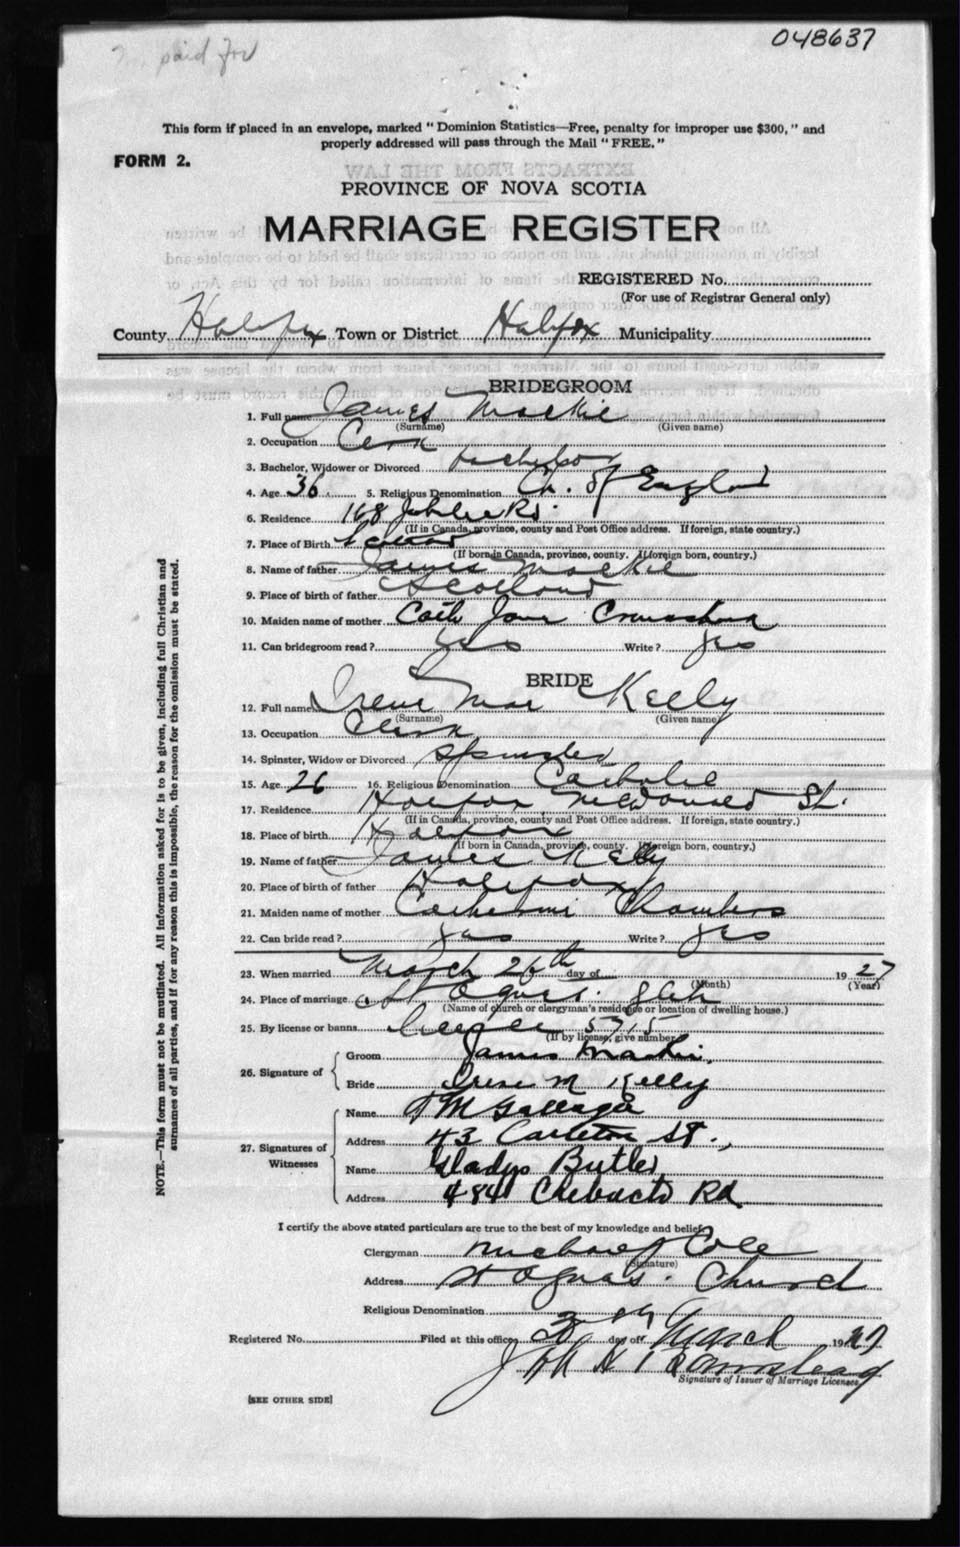 048637
paid for
This form if placed in an envelope, marked "Dominion Statistics—Free, penalty for improper use $300," and
properly addressed will pass through the Mail "FREE."
FORM 2.
EXTRACTS FROM THE LAW
PROVINCE OF NOVA SCOTIA
MARRIAGE REGISTER
REGISTERED No.
(For use of Registrar General only)
County Halifax Town or District Halifax Municipality
BRIDEGROOM
1. Full name James Mackie
(Surname) (Given name)
2. Occupation
3. Bachelor, Widower or Divorced Bachelor
4. Age 36. 5. Religious Denomination Ch. of England
6. Residence 168 Jubilee Rd.
(If in Canada, province, county and Post Office address. If foreign, state country.)
7. Place of Birth Scotland
(If born in Canada, province, county. If foreign born, country.)
8. Name of father James Mackie
9. Place of birth of father Scotland
10. Maiden name of mother Cath Jane
11. Can bridegroom read? Yes Write? yes
BRIDE
12. Full name Irene Mae Kelly
(Surname) (Given name)
13. Occupation Clerk
14. Spinster, Widow or Divorced Spinster
15. Age 26 16. Religious Denomination Catholic
17. Residence Halifax McDonald St.
(If in Canada, province, county and Post Office address. If foreign, state country.)
18. Place of birth Halifax
(If born in Canada, province, county. If foreign born, country.)
19. Name of father James Kelly
20. Place of birth of father Halifax
21. Maiden name of mother Catherine Chambers
22. Can bride read? Yes Write? yes
23. When married March 26th day of 1927
(Month) (Year)
24. Place of marriage St Agnes.
(Name of church or clergyman's residence or location of dwelling house.)
25. By license or banns License 5715
(If by license, give number)
26. Signature of
Groom James Mackie.
Bride Irene M Kelly
27. Signatures of Witnesses
Name
Address 43 Carleton St.,
Name Gladys Butler
Address 484 Chebucto Rd
I certify the above stated particulars are true to the best of my knowledge and belief.
Clergyman Michael J Cole
(Signature)
Address St Agnes. Church
Religious Denomination
Registered No. Filed at this office day of March 1927
Signature of Issuer of Marriage Licenses
[SEE OTHER SIDE]
NOTE.—This form must not be mutilated. All information asked for is to be given, including full Christian and
surnames of all parties, and if for any reason this is impossible, the reason for the omission must be stated.